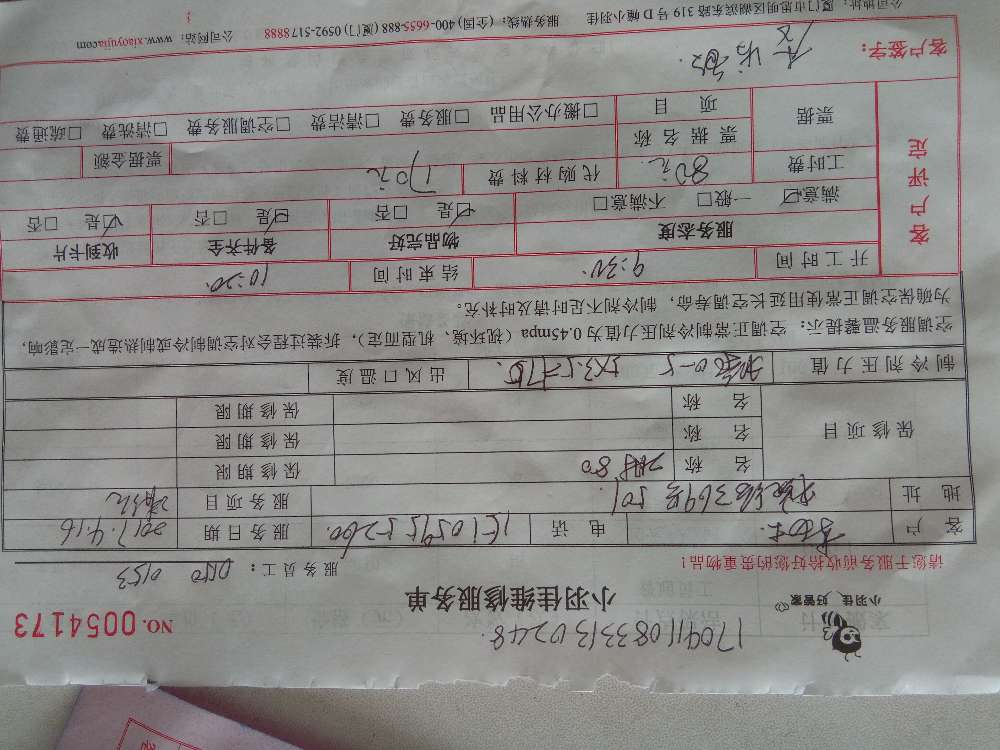 小羽佳、好管家
NO. 0054173
小羽佳维修服务单
请您于服务前收拾好您的贵重物品！ 服务员工： 0150 0153
客户 电话 服务日期 2017.4.16
地址 369号501 服务项目
保修项目 名称 80 保修期限
名称 保修期限
名称 保修期限
制冷剂压力值 出风口温度
空调服务温馨提示：空调正常制冷剂压力值为0.45mpa（视环境、机型而定），拆装过程会对空调制冷或制热造成一定影响，
为确保空调正常使用延长空调寿命，制冷剂不足时请及时补充。
客户评定
开工时间 9:30 结束时间 10:20
服务态度 物品完好 备件齐全 收到卡片
☑满意 一般□ 不满意□ ☑是 □否 ☑是 □否 ☑是 □否
工时费 80元 代购材料费 170元
票据 票据名称 票据金额
项目 □搬办公用品 □服务费 □清洁费 □空调服务费 □清洗费 □疏通费
客户签字：
公司地址：厦门市思明区湖滨东路319号D幢小羽佳 服务热线：(全国)400-6655-888 (厦门)0592-5178888 公司网站：www.xiaoyujia.com